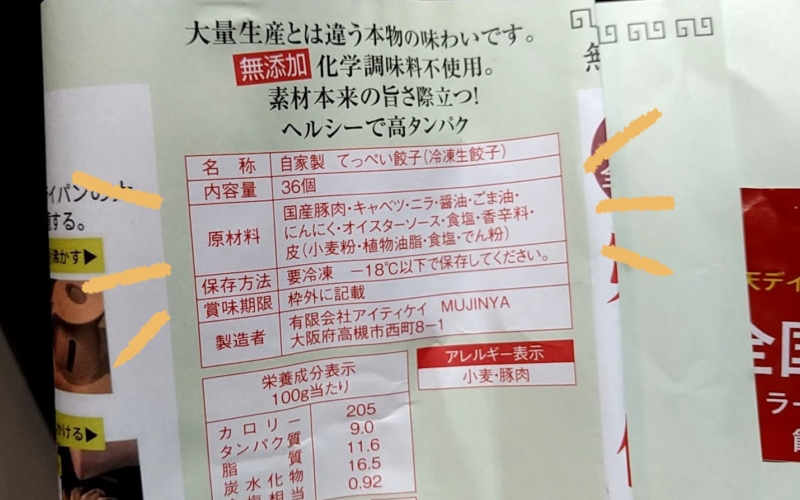 大量生産とは違う本物の味わいです。
無添加 化学調味料不使用。
素材本来の旨さ際立つ!
ヘルシーで高タンパク
名 称 自家製 てっぺい餃子(冷凍生餃子)
内容量 36個
原材料 国産豚肉・キャベツ・ニラ・醤油・ごま油・
にんにく・オイスターソース・食塩・香辛料・
皮(小麦粉・植物油脂・食塩・でん粉)
保存方法 要冷凍 −18℃以下で保存してください。
賞味期限 枠外に記載
製造者 有限会社アイティケイ MUJINYA
大阪府高槻市西町8−1
アレルギー表示
小麦・豚肉
栄養成分表示
100g当たり
カロリー 205
タンパク質 9.0
脂 質 11.6
炭水化物 16.5
0.92
する。
沸かす▶
かける▶
無
天デイ
全国
ラー